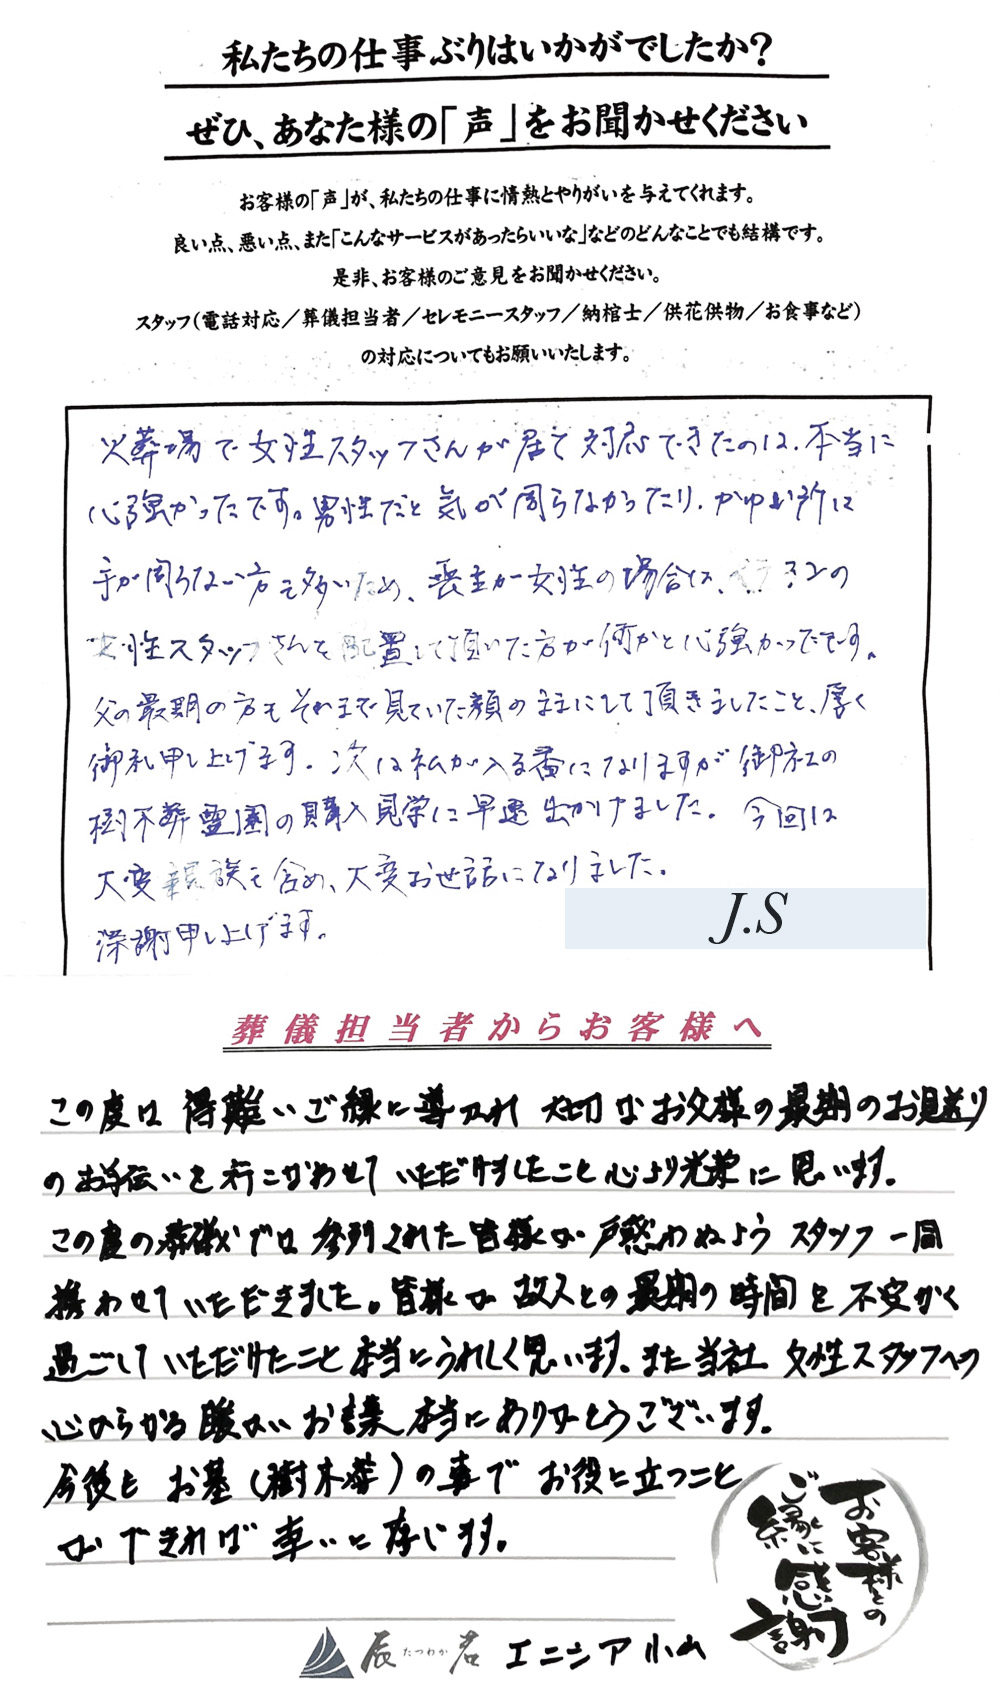 私たちの仕事ぶりはいかがでしたか？
ぜひ、あなた様の「声」をお聞かせください
お客様の「声」が、私たちの仕事に情熱とやりがいを与えてくれます。
良い点、悪い点、また「こんなサービスがあったらいいな」などのどんなことでも結構です。
是非、お客様のご意見をお聞かせください。
スタッフ（電話対応／葬儀担当者／セレモニースタッフ／納棺士／供花供物／お食事など）
の対応についてもお願いいたします。
火葬場で女性スタッフさんが居て対応できたのは、本当に
心強かったです。男性だと気が周らなかったり、かゆい所に
手が周らない方も多いため、喪主が女性の場合は、
女性スタッフさんを配置して頂いた方が何かと心強かったです。
父の最期の方もそれまで見ていた顔のままにして頂きましたこと、厚く
御礼申し上げます。次は私が入る番になりますが御社の
樹木葬霊園の購入見学に早速出かけました。今回は
大変親族も含め、大変お世話になりました。
深謝申し上げます。
J.S
葬儀担当者からお客様へ
この度は 得難いご縁に導かれ 大切なお父様の最期のお見送り
のお手伝いを行こなわせていただけましたこと心より光栄に思います。
この度の葬儀では 参列された皆様が戸惑わぬよう スタッフ一同
携わせていただきました。皆様が故人との最期の時間を不安なく
過ごしていただけたこと本当にうれしく思います、また当社 女性スタッフへの
心からなる暖かいお言葉 本当にありがとうございます。
今後も お墓（樹木葬）の事で お役に立つこと
が できれば 幸いに存じます。
お客様との
ご縁に
感謝
辰たつわか若 エニシア小山